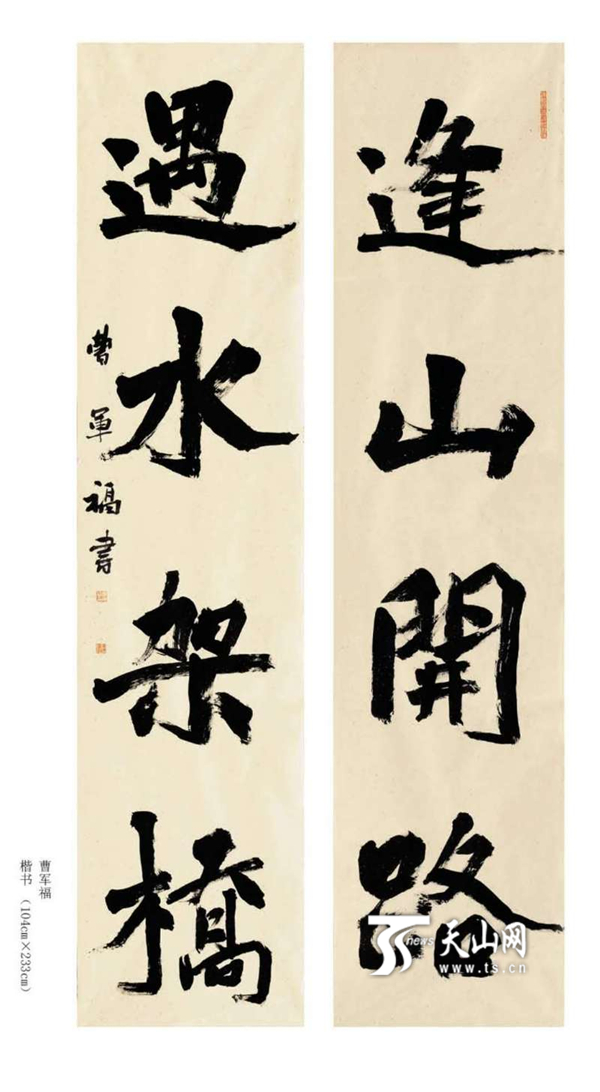 逢山開路
遇水架橋
曹軍福書
曹军福
楷书 （104cm×233cm）
TS news 天山网
www.ts.cn